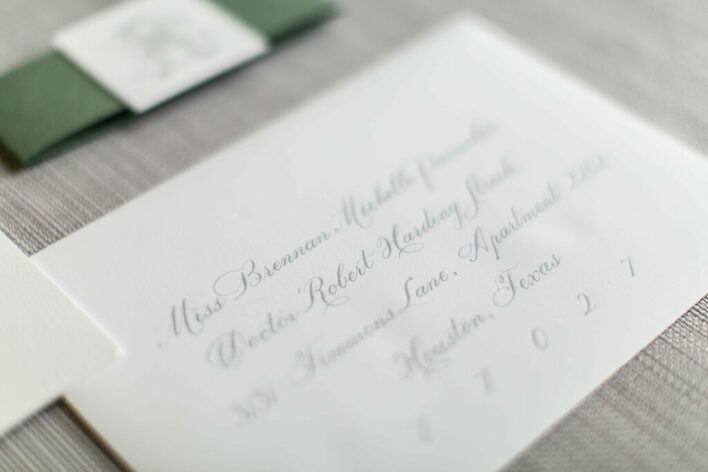 Miss Brennan Michelle
Doctor Robert Harding Streck
Timmons Lane, Apartment
Houston, Texas
7 0 2 7